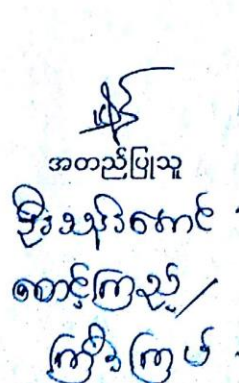 အတည်ပြုသူ
ဦးသန်းအောင်
စောင့်ကြည့်/
ကြီးကြပ်